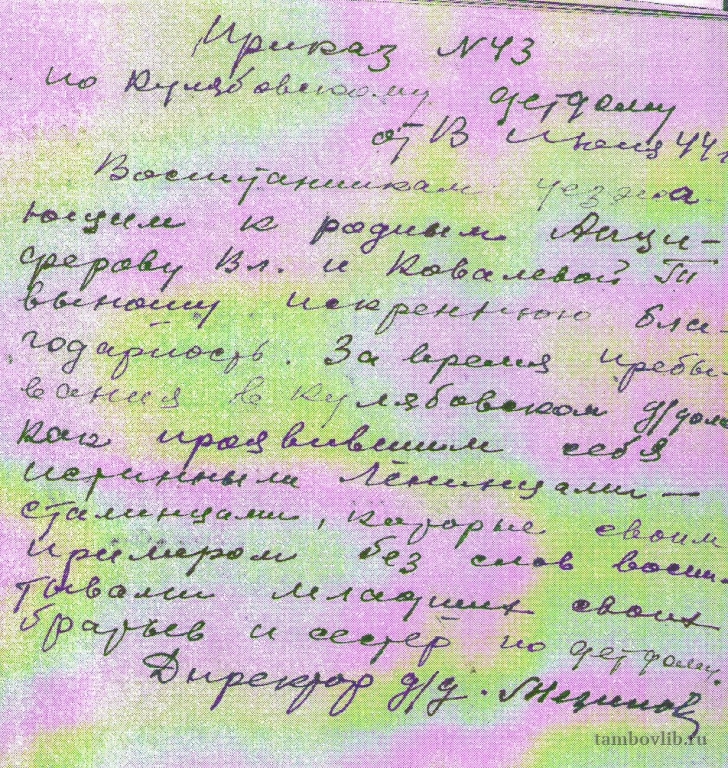 Приказ N43
по Кулябовскому детдому
от 13 Июня 44 г
Воспитанникам уезжа
ющим к родным Анци-
ферову Вл. и Ковалевой
выношу искреннюю бла-
годарность. За время пребы-
вания в Кулябовском д/доме
как проявившим себя
истинными Ленинцами —
сталинцами, которые своим
примером без слов воспи-
тывали младших своих
братьев и сестёр по детдому.
Директор д/д.
tambovlib.ru